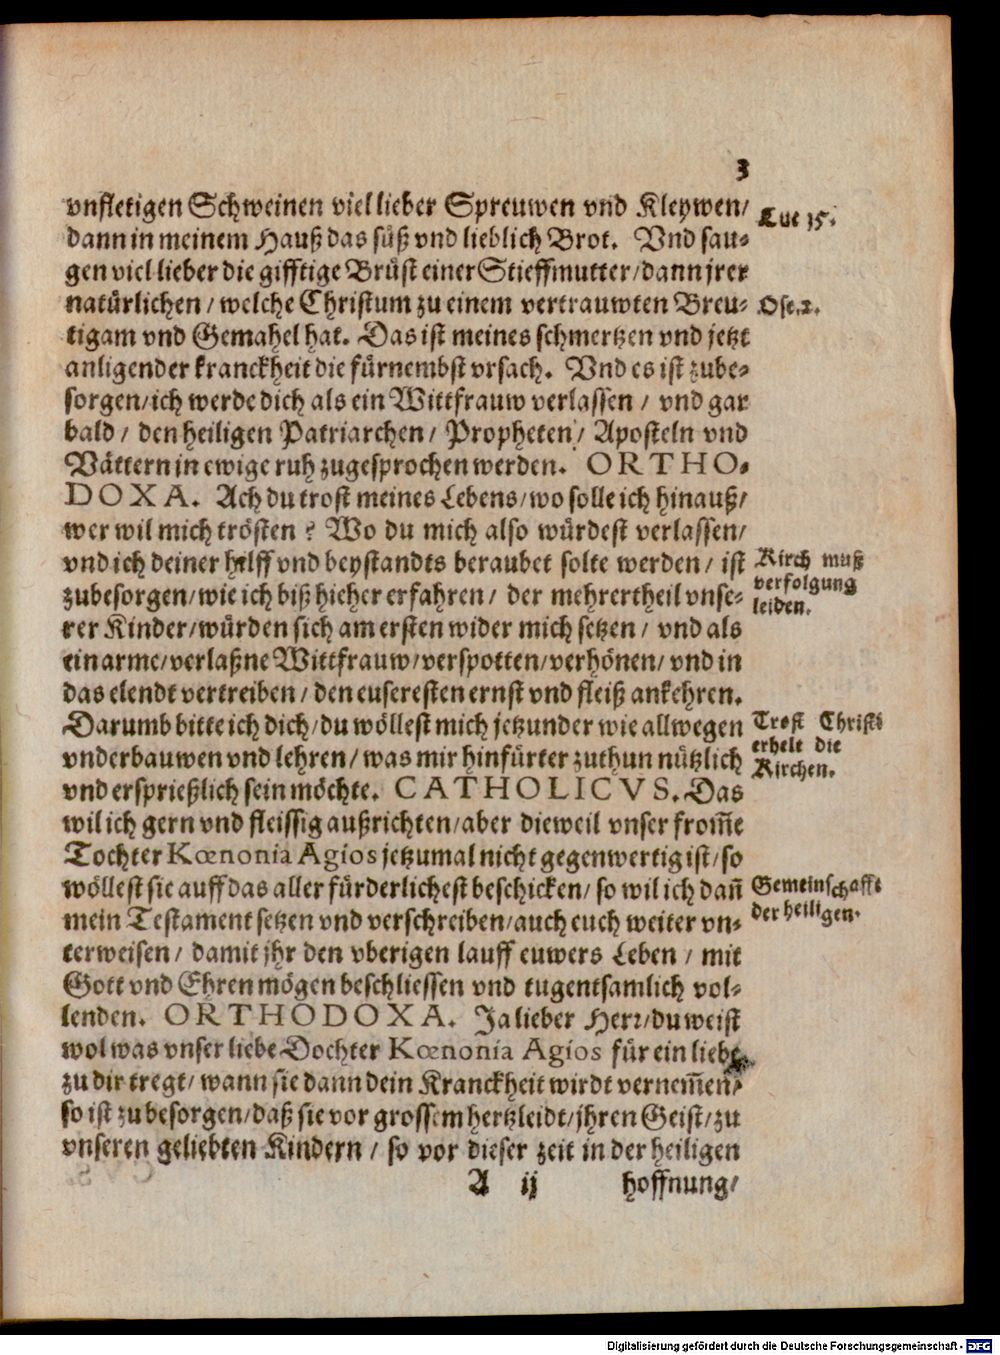 3
vnfletigen Schweinen viel lieber Spreuwen vnd Kleywen/
Luc 15.
dann in meinem Hauß das süß vnd lieblich Brot. Vnd sau-
gen viel lieber die gifftige Brüst einer Stieffmutter/dann jrer
natürlichen/ welche Christum zu einem vertrauwten Breu-
Ose.2.
tigam vnd Gemahel hat. Das ist meines schmertzen vnd jetzt
anligender kranckheit die fürnembst vrsach. Vnd es ist zube-
sorgen/ich werde dich als ein Wittfrauw verlassen / vnd gar
bald / den heiligen Patriarchen/ Propheten/ Aposteln vnd
Vättern in ewige ruh zugesprochen werden. ORTHO-
DOXA. Ach du trost meines Lebens/wo solle ich hinauß/
wer wil mich trösten? Wo du mich also würdest verlassen/
vnd ich deiner hilff vnd beystandts beraubet solte werden/ ist
Kirch muß
verfolgung
leiden.
zubesorgen/wie ich biß hieher erfahren/ der mehrertheil vnse-
rer Kinder/würden sich am ersten wider mich setzen / vnd als
ein arme/verlaßne Wittfrauw/verspotten/verhönen/ vnd in
das elendt vertreiben/ den euseresten ernst vnd fleiß ankehren.
Darumb bitte ich dich/du wöllest mich jetzunder wie allwegen
Trost Christi
erhelt die
Kirchen.
vnderbauwen vnd lehren/ was mir hinfürter zuthun nützlich
vnd ersprießlich sein möchte. CATHOLICVS. Das
wil ich gern vnd fleissig außrichten/aber dieweil vnser from̃e
Tochter Kœnonia Agios jetzumal nicht gegenwertig ist/so
wöllest sie auff das aller fürderlichest beschicken/ so wil ich dañ
Gemeinschafft
der heiligen.
mein Testament setzen vnd verschreiben/auch euch weiter vn-
terweisen/ damit jhr den vberigen lauff euwers Leben / mit
Gott vnd Ehren mögen beschliessen vnd tugentsamlich vol-
lenden. ORTHODOXA. Ja lieber Herr/du weist
wol was vnser liebe Dochter Kœnonia Agios für ein liebe
zu dir tregt/ wann sie dann dein Kranckheit wirdt vernem̃en/
so ist zu besorgen/daß sie vor grossem hertzleidt/jhren Geist/zu
vnseren geliebten Kindern / so vor dieser zeit in der heiligen
A ij hoffnung/
Digitalisierung gefördert durch die Deutsche Forschungsgemeinschaft - DFG